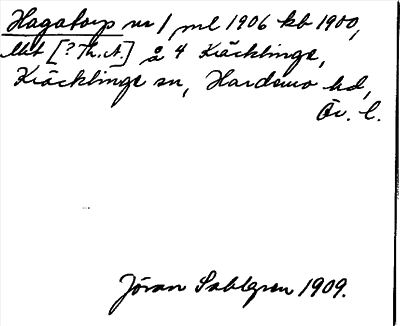 Hagatorp nr 1 ml 1906 kb 1900,
[? Th. A.] å 4 Kräcklinge,
Kräcklinge sn, Hardemo hd,
Ör. l.
Jöran Sahlgren 1909.